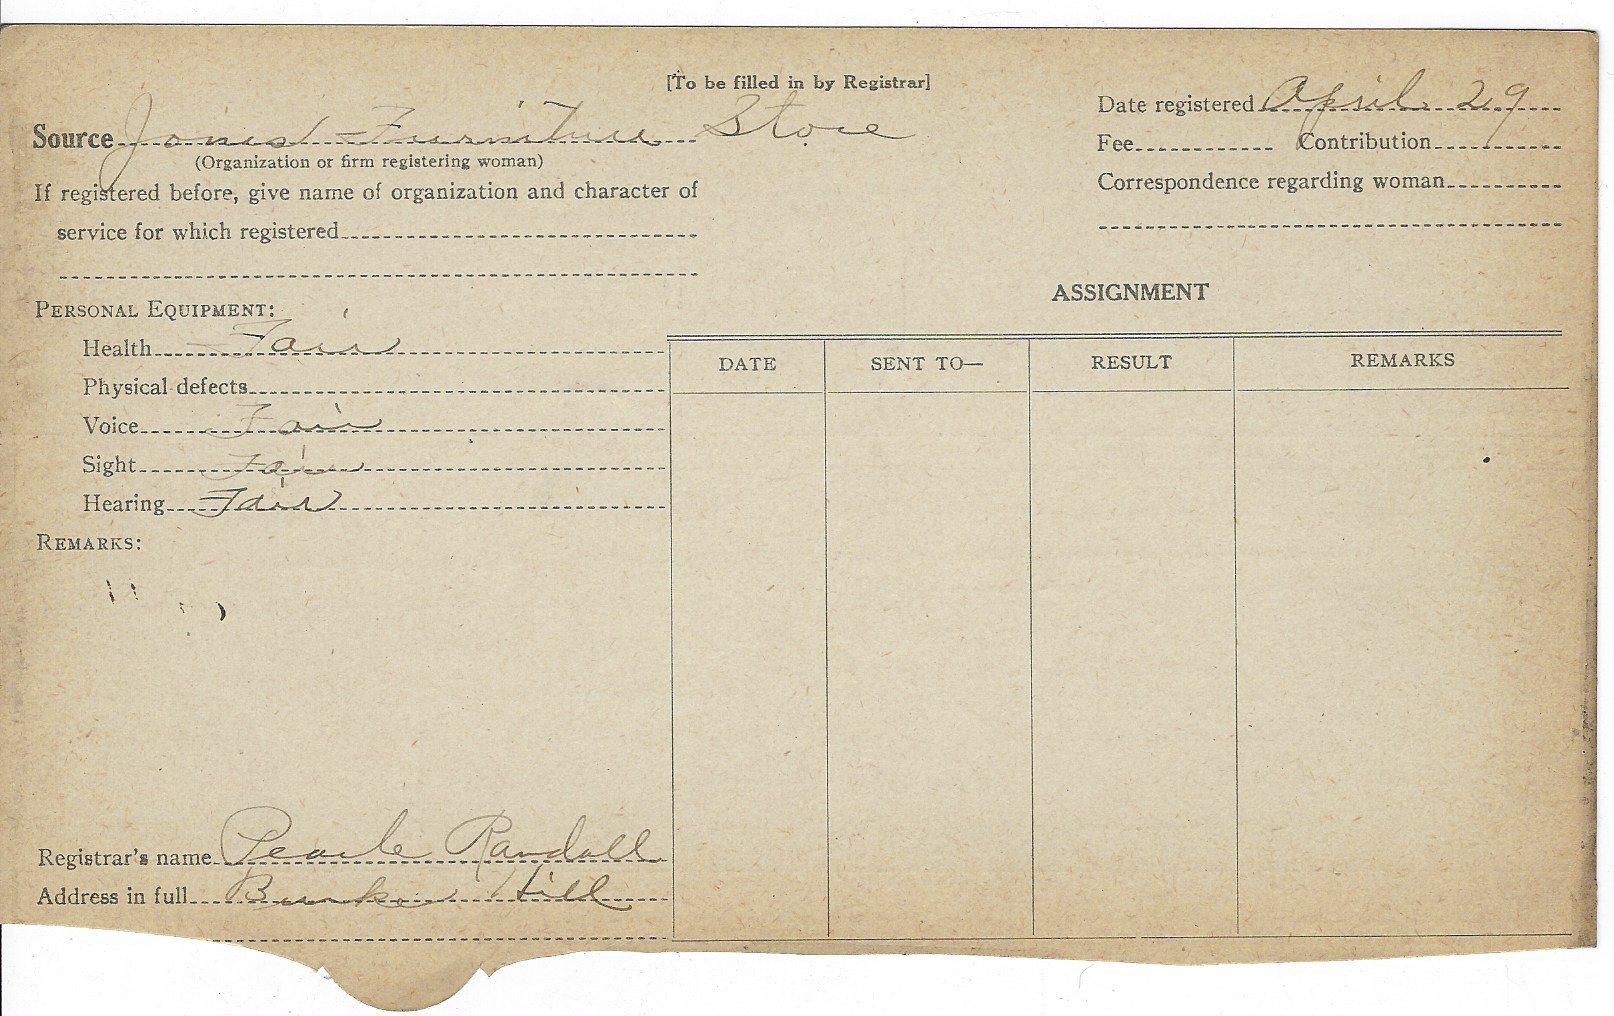 [To be filled in by Registrar]
Source Jones Furniture Store
(Organization or firm registering woman)
If registered before, give name of organization and character of
service for which registered
Date registered April 29
Fee Contribution
Correspondence regarding woman
PERSONAL EQUIPMENT:
Health Fair
Physical defects
Voice Fair
Sight Fair
Hearing Fair
REMARKS:
ASSIGNMENT
DATE SENT TO— RESULT REMARKS
Registrar's name Pearle Randall
Address in full Bunker Hill